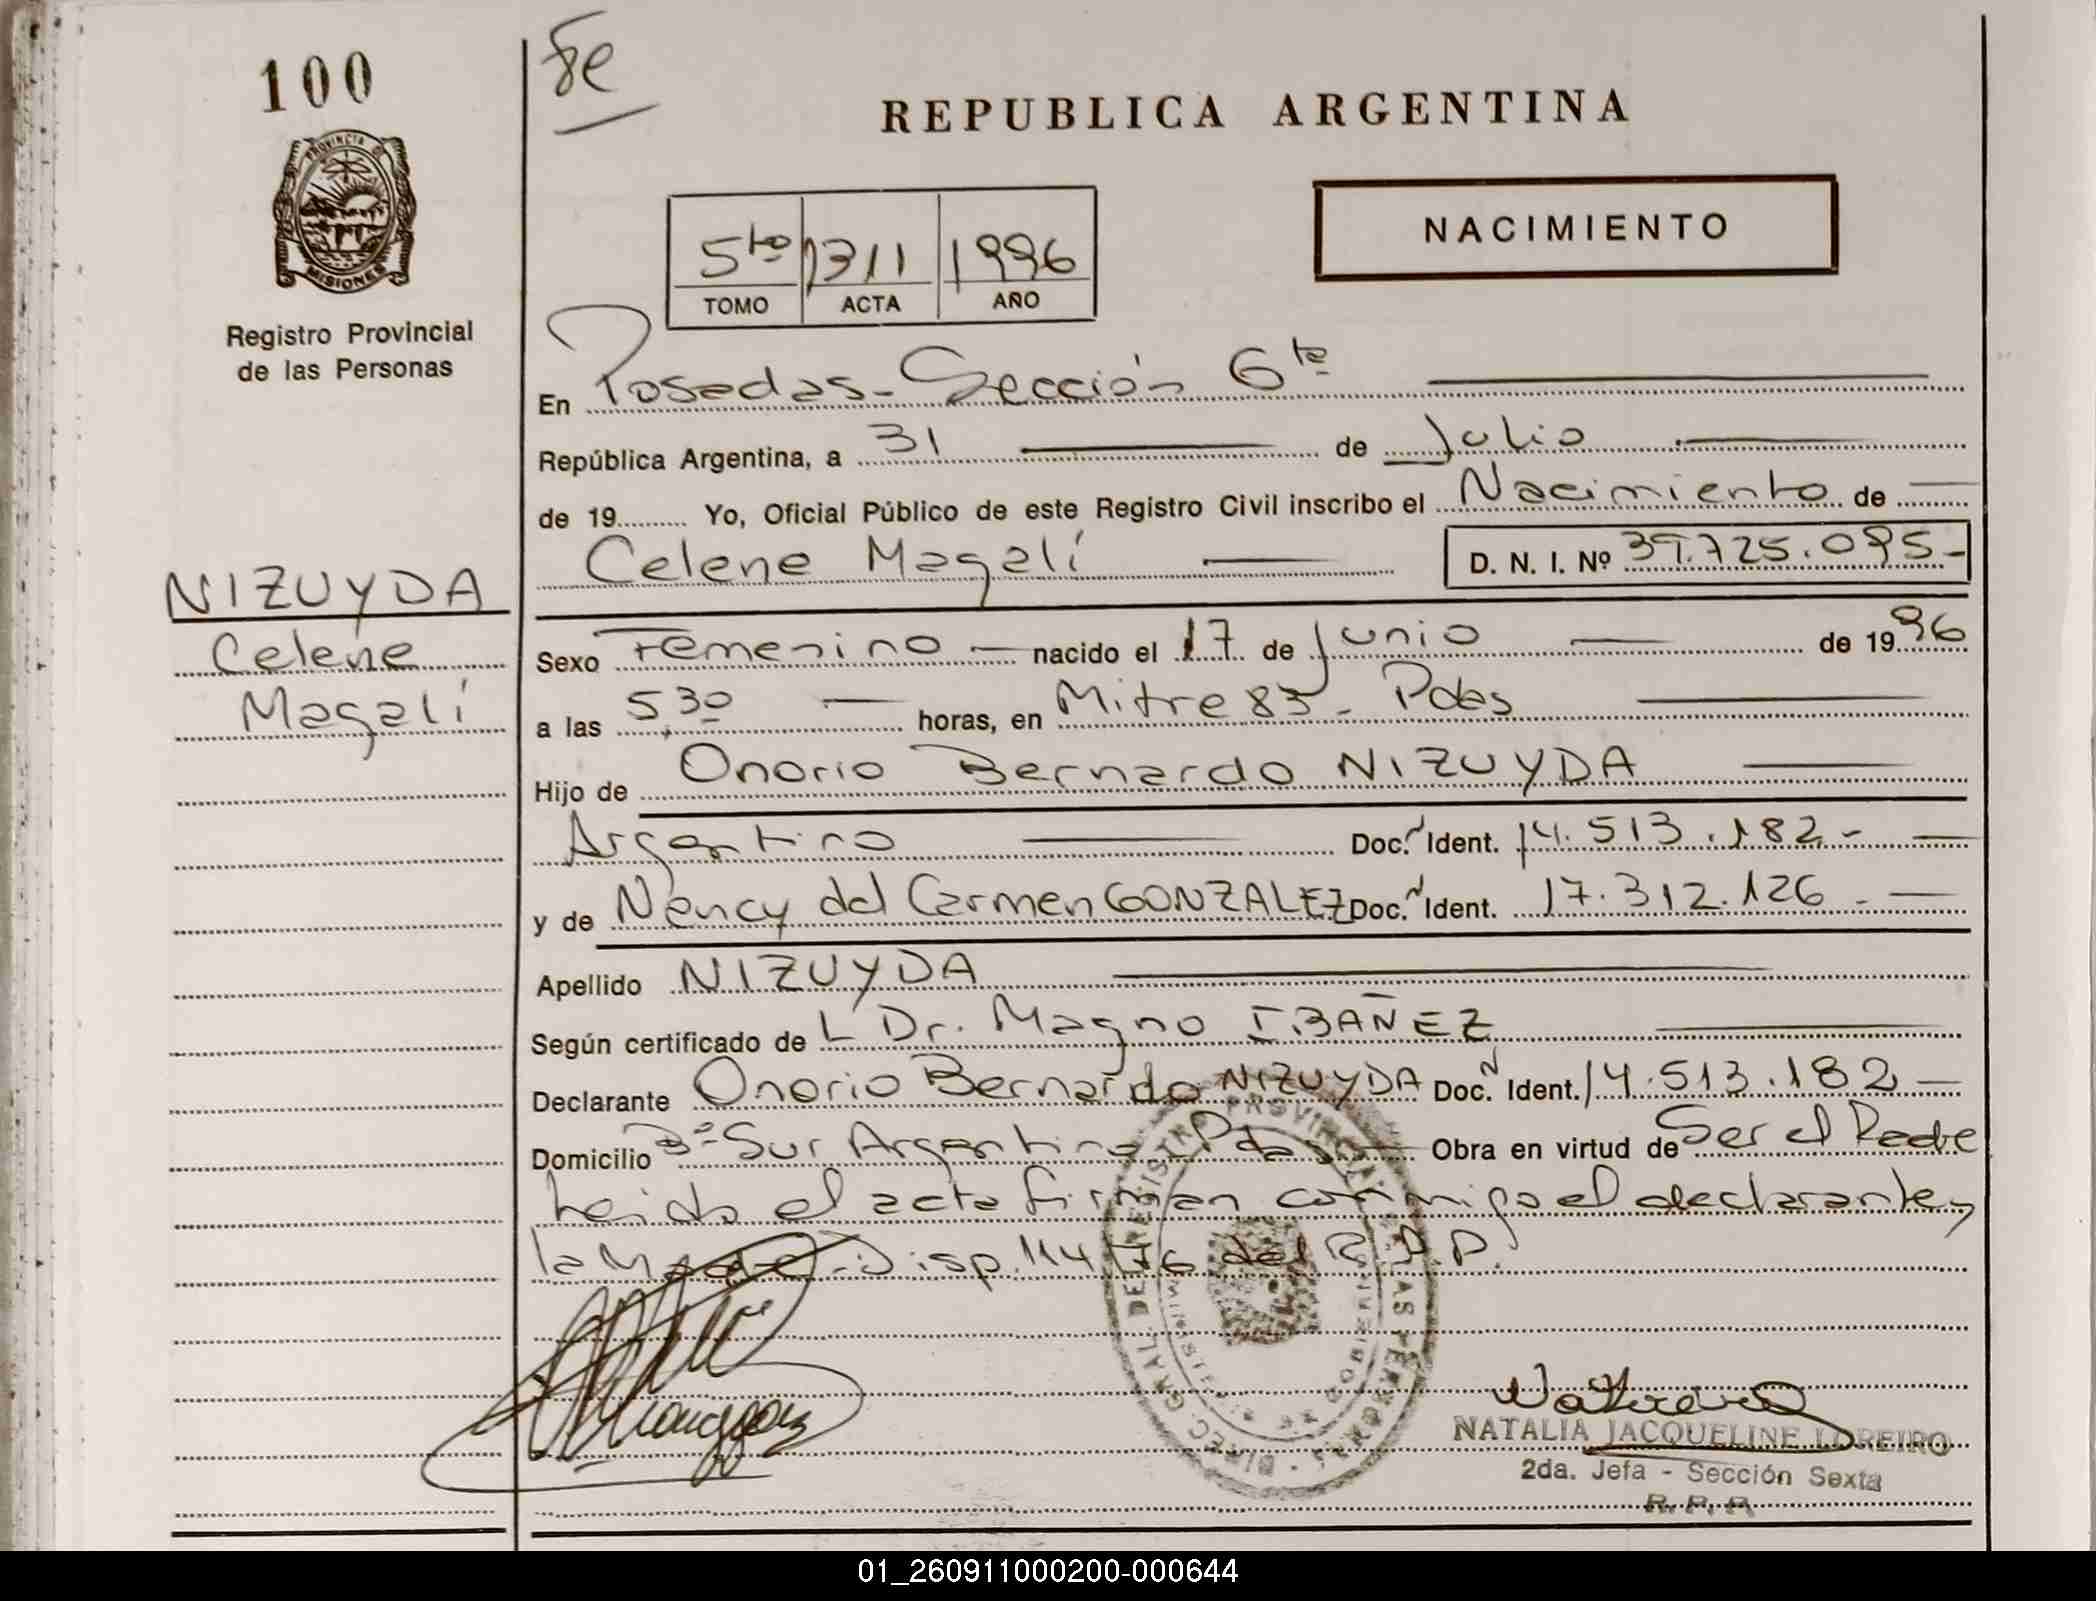 100
fe
REPUBLICA ARGENTINA
PROVINCIA DE
MISIONES
Registro Provincial
de las Personas
NACIMIENTO
5to 1311 1996
TOMO ACTA AÑO
En Posadas - Sección 6ta
República Argentina, a 31 de Julio
de 19 Yo, Oficial Público de este Registro Civil inscribo el Nacimiento de
Celene Magalí D. N. I. Nº 39.725.095-
NIZUYDA
Celene
Magalí
Sexo Femenino nacido el 17 de Junio de 1996
a las 5,30 horas, en Mitre 83 - Pdas
Hijo de Onorio Bernardo NIZUYDA
Argentino Doc. Ident. 14.513.182-
y de Nancy del Carmen GONZALEZ Doc. Ident. 17.312.126-
Apellido NIZUYDA
Según certificado de L Dr. Magno IBAÑEZ
Declarante Onorio Bernardo NIZUYDA Doc. Ident. 14.513.182
Domicilio Bº Sur Argentino Pdas Obra en virtud de Ser el Padre
Leido el acta firman conmigo el declarante y
la Madre. Disp. 114/76 del R.P.P.
DIREC. GRAL. DEL REGISTRO PROVINCIAL DE LAS PERSONAS
NATALIA JACQUELINE LOREIRO
2da. Jefa - Sección Sexta
R. P. P.
01_260911000200-000644